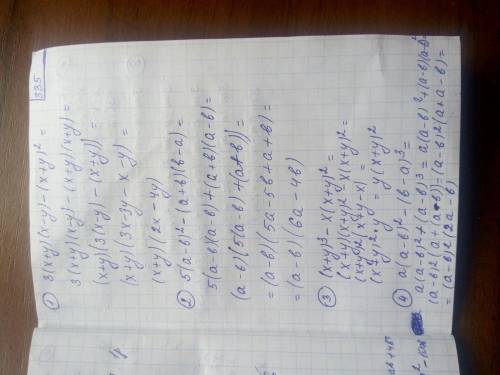 335
① 3(x+y)(x-y)-(x+y)² =
3(x+y)(x-y)-(x+y)(x+y)=
(x+y)(3(x-y)-(x+y))=
(x+y)(3x-3y-x-y)=
(x+y)(2x-4y)
② 5(a-b)²-(a+b)(b-a)=
5(a-b)(a-b)+(a+b)(a-b)=
(a-b)(5(a-b)+(a+b))=
=(a-b)(5a-5b+a+b)=
=(a-b)(6a-4b)
③ (x+y)³-x(x+y)²=
(x+y)(x+y)²-x(x+y)²=
(x+y)²(x+y-x)=
(x+y)²·y=y(x+y)²
④ a(a-b)²-(b-a)³=
a(a-b)²+(a-b)³=a(a-b)²+(a-b)(a-b)²
(a-b)²(a+(a-b))=(a-b)²(a+a-b)=
=(a-b)²(2a-b)